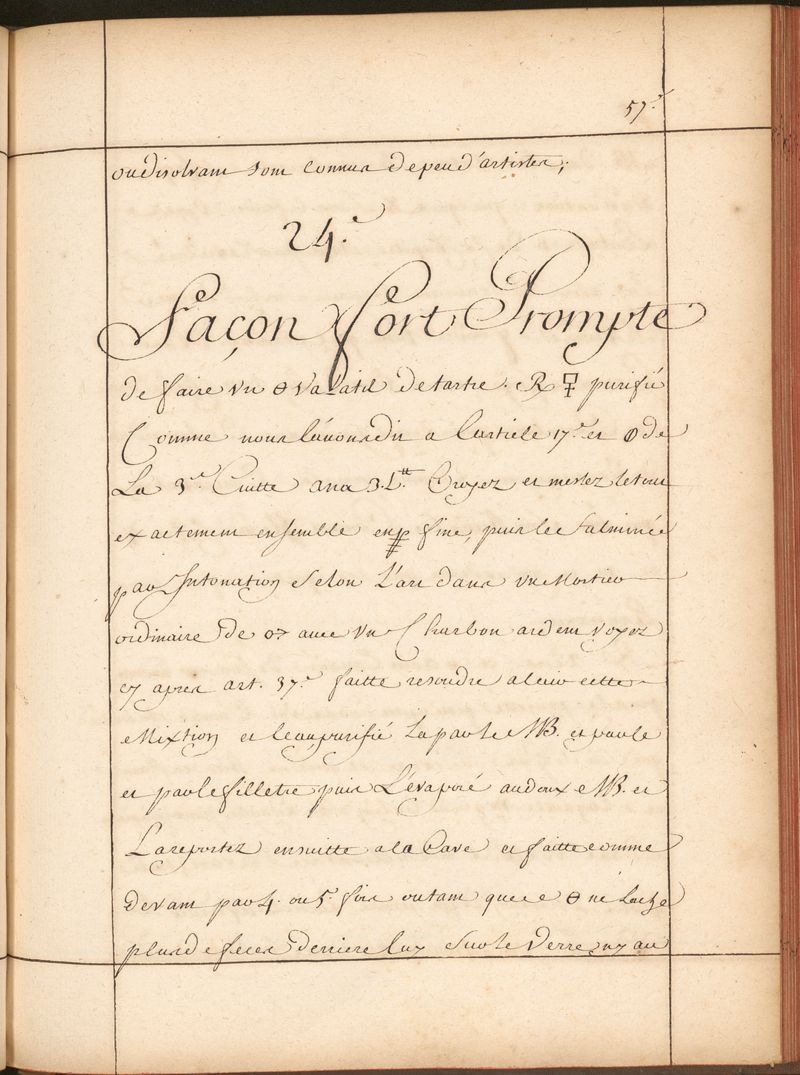 57.
ou disolvant sont connus de peu d'artistes;
24.
Façon fort Prompte
de faire un 🜔 valatil de tartre. ℞ 🜿 purifié
Comme nous l'avons dit a l'article 17.e et 🜕 de
La 3.e Cuitte ana 3. L.tt Broyez et meslez le tout
exactement ensemble en fine, puis le fulminée
par Intonation Selon L'art dans un Mortier
ordinaire de avec un Charbon ardent voyez
cy apres art. 37.e faitte resoudre a l'air cette
Mixtion et l'eau purifié La par le MB. et par le
et par le filletre puis L'évaporé au doux MB. et
La reportez ensuitte a la Cave et faitte comme
devant par 4. ou 5. fois outant que ce 🜔 né Laisse
plus de feces derriere luy Sur le Verre ny au